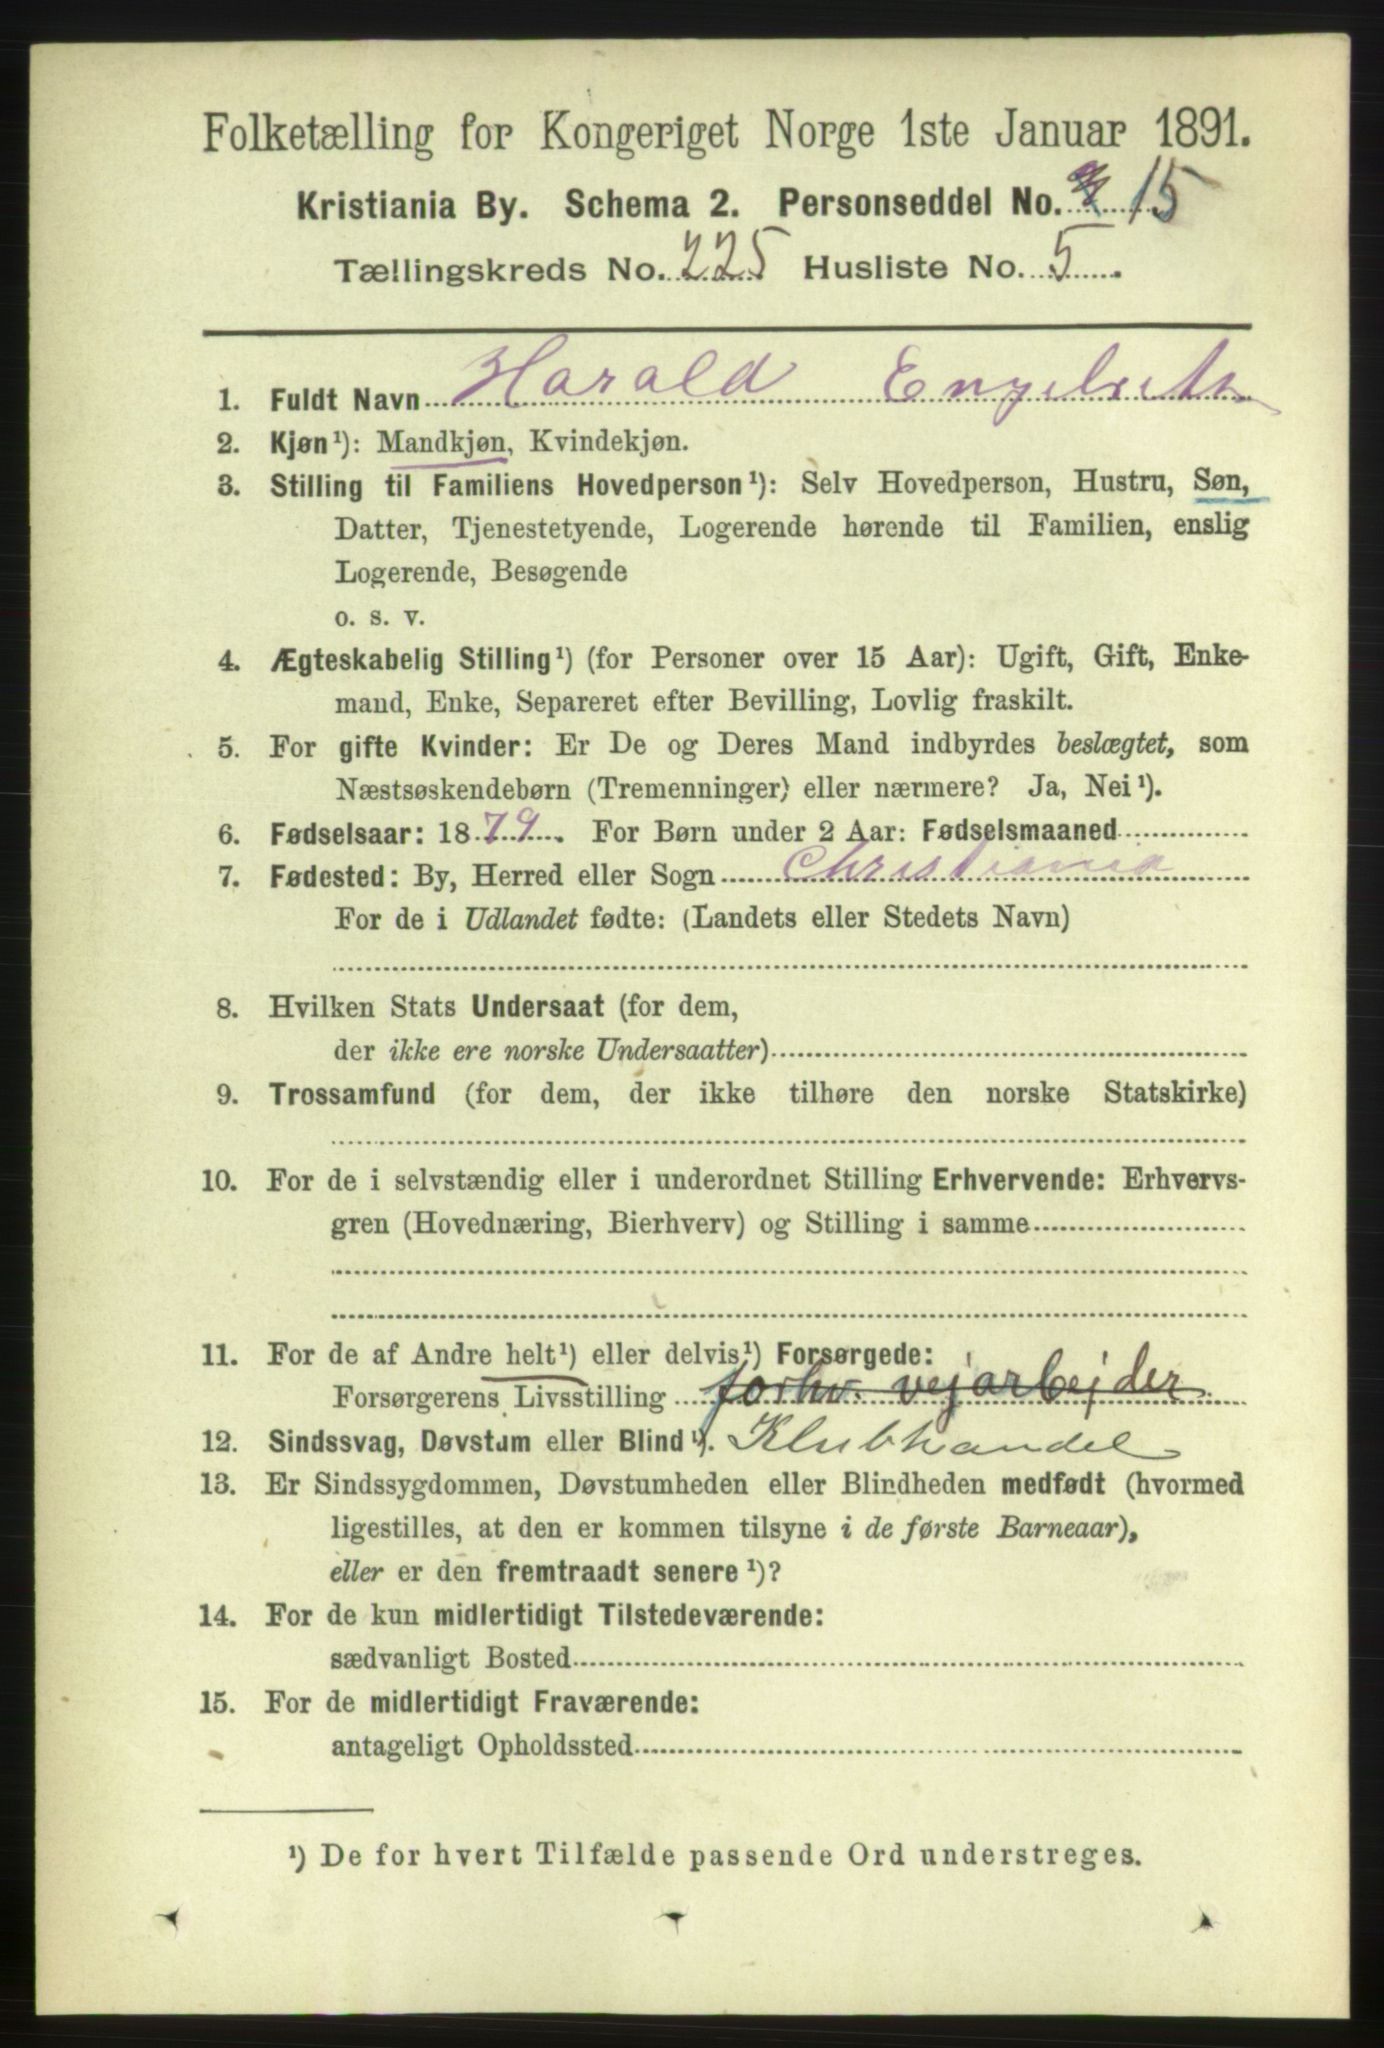 Folketælling for Kongeriget Norge 1ste Januar 1891.
Kristiania By. Schema 2. Personseddel No. 15
Tællingskreds No. 225 Husliste No. 5
1. Fuldt Navn Harald Engelseth
2. Kjøn¹): Mandkjøn, Kvindekjøn.
3. Stilling til Familiens Hovedperson¹): Selv Hovedperson, Hustru, Søn,
Datter, Tjenestetyende, Logerende hørende til Familien, enslig
Logerende, Besøgende
o. s. v.
4. Ægteskabelig Stilling¹) (for Personer over 15 Aar): Ugift, Gift, Enke-
mand, Enke, Separeret efter Bevilling, Lovlig fraskilt.
5. For gifte Kvinder: Er De og Deres Mand indbyrdes beslægtet, som
Næstsøskendebørn (Tremenninger) eller nærmere? Ja, Nei¹).
6. Fødselsaar: 1879. For Børn under 2 Aar: Fødselsmaaned
7. Fødested: By, Herred eller Sogn Christiania
For de i Udlandet fødte: (Landets eller Stedets Navn)
8. Hvilken Stats Undersaat (for dem,
der ikke ere norske Undersaatter)
9. Trossamfund (for dem, der ikke tilhøre den norske Statskirke)
10. For de i selvstændig eller i underordnet Stilling Erhvervende: Erhvervs-
gren (Hovednæring, Bierhverv) og Stilling i samme
11. For de af Andre helt¹) eller delvis¹) Forsørgede:
Forsørgerens Livsstilling forhv. vejarbejder
12. Sindssvag, Døvstum eller Blind¹). Klubhandel
13. Er Sindssygdommen, Døvstumheden eller Blindheden medfødt (hvormed
ligestilles, at den er kommen tilsyne i de første Barneaar),
eller er den fremtraadt senere¹)?
14. For de kun midlertidigt Tilstedeværende:
sædvanligt Bosted
15. For de midlertidigt Fraværende:
antageligt Opholdssted
¹) De for hvert Tilfælde passende Ord understreges.